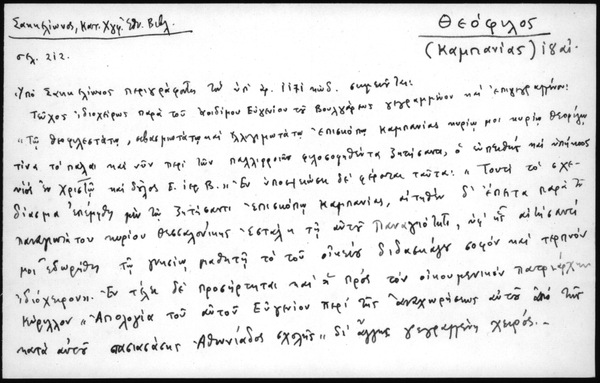 Σακκελίωνος, Κατ. Χγφ. Ἐθν. Βιβλ.
Θεόφιλος
(Καμπανίας) ιηʹ αἰ.
σελ. 212.
Ὑπὸ Σακκελίωνος περιγράφεται τοῦ ὑπʼ ἀρ. 1171 κώδ. σημειοῦται:
Τεῦχος ἰδιοχείρως παρὰ τοῦ ἀοιδίμου Εὐγενίου τοῦ Βουλγάρεως γεγραμμένον καὶ ἐπιγεγραμμένον:
"Τῷ θεοφιλεστάτῳ, σεβασμιωτάτῳ καὶ ἐλλογιμωτάτῳ Ἐπισκόπῳ Καμπανίας κυρίῳ μοι κυρίῳ Θεοφίλῳ
τινα τὸ πάλαι καὶ νῦν περὶ τῶν παλιρροιῶν φιλοσοφηθέντα ζητήσαντι, ὁ εὐπειθὴς καὶ ὑπήκοος
ἐν Χριστῷ καὶ δοῦλος Ε. ἱερ. Β." Ἐν ὑποσημειώσει δὲ φέρονται ταῦτα: "Τουτὶ τὸ σχε-
δίασμα ἐπέμφθη μὲν τῷ ζητήσαντι Ἐπισκόπῳ Καμπανίας, αἰτηθὲν δʼ ἔπειτα παρὰ τοῦ
παναγιωτάτου κυρίου Θεσσαλονίκης ἐστάλη τῇ αὐτοῦ Παναγιότητι, ὑφʼ ἧς αἰτήσαντί
μοι ἐδωρήθη τῷ γνησίῳ μαθητῇ τὸ τοῦ οἰκείου διδασκάλου σοφὸν καὶ τερπνὸν
ἰδιόχειρον". Ἐν τέλει δὲ προσήρτηται καὶ ἡ πρὸς τὸν οἰκουμενικὸν πατριάρχην
Κύριλλον "Ἀπολογία τοῦ αὐτοῦ Εὐγενίου περὶ τῆς ἀναχωρήσεως αὐτοῦ ἀπὸ τῆς
κατὰ αὐτοῦ στασιασάσης Ἀθωνιάδος σχολῆς" διʼ ἄλλης γεγραμμένη χειρός.—